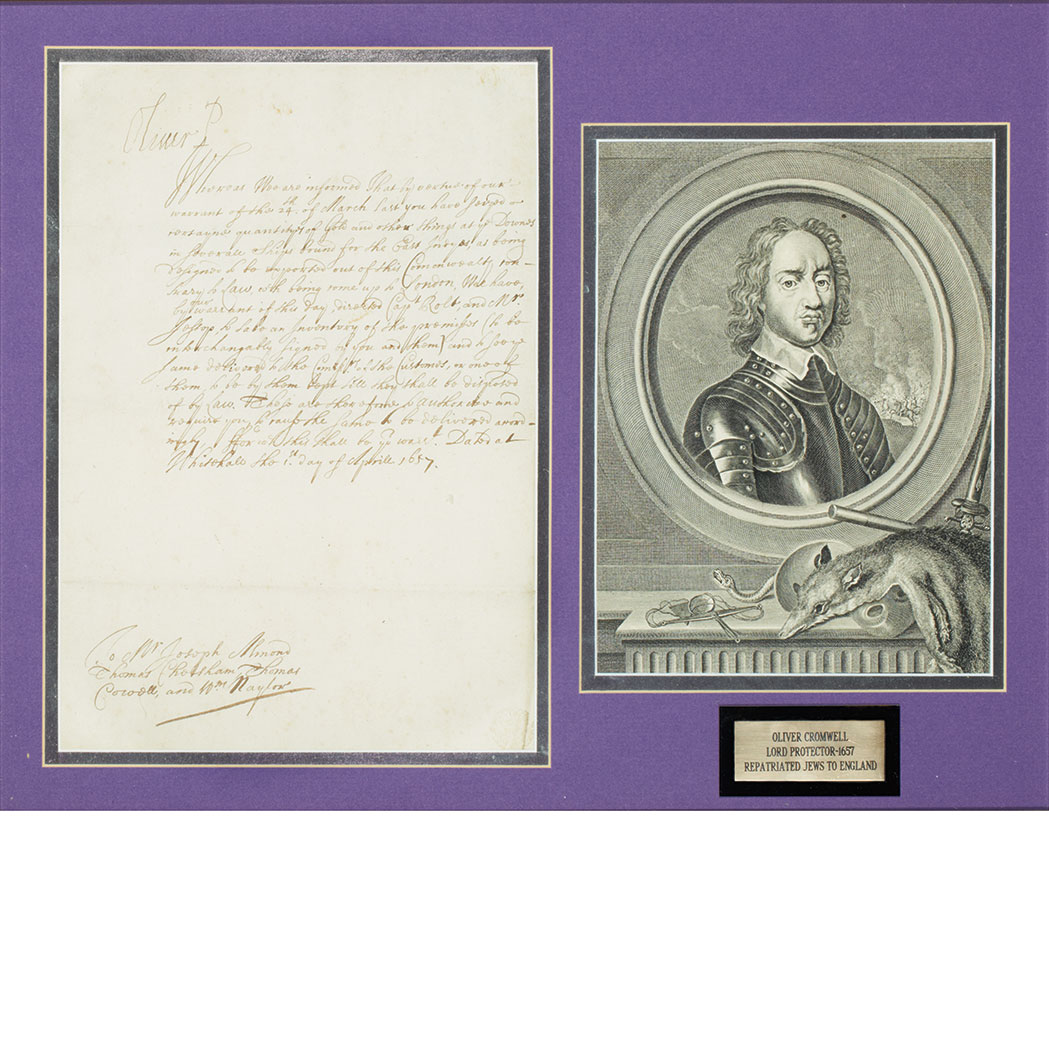 Oliver P
Whereas Wee are informed that by vertue of our
warrant of the 24th. of March last you have seized a
certayne quantity of Gold and other things at ye Downes
in severall Ships bound for the East Indyes, as being
designed to be exported out of this Commonwealth, con-
trary to Law, wch being come up to London, Wee have,
by our warrant of this day, directed Capt Rolt, and Mr
Jessop to take an Inventory of the premisses (to be
interchangably signed by you and them) and to see ye
same delivered to the Comrs of the Customes, or one of
them to be by them kept till they shall be disposed
of by Law. These are therefore to authorize and
require you to cause the same to be delivered accord-
ingly for wch this shall be yor warrt. Dated at
Whitehall the 1st. day of Aprill 1657.
To Mr Joseph Almond
Thomas Chetsham, Thomas
Cowell, and Wm Naylor
OLIVER CROMWELL
LORD PROTECTOR-1657
REPATRIATED JEWS TO ENGLAND